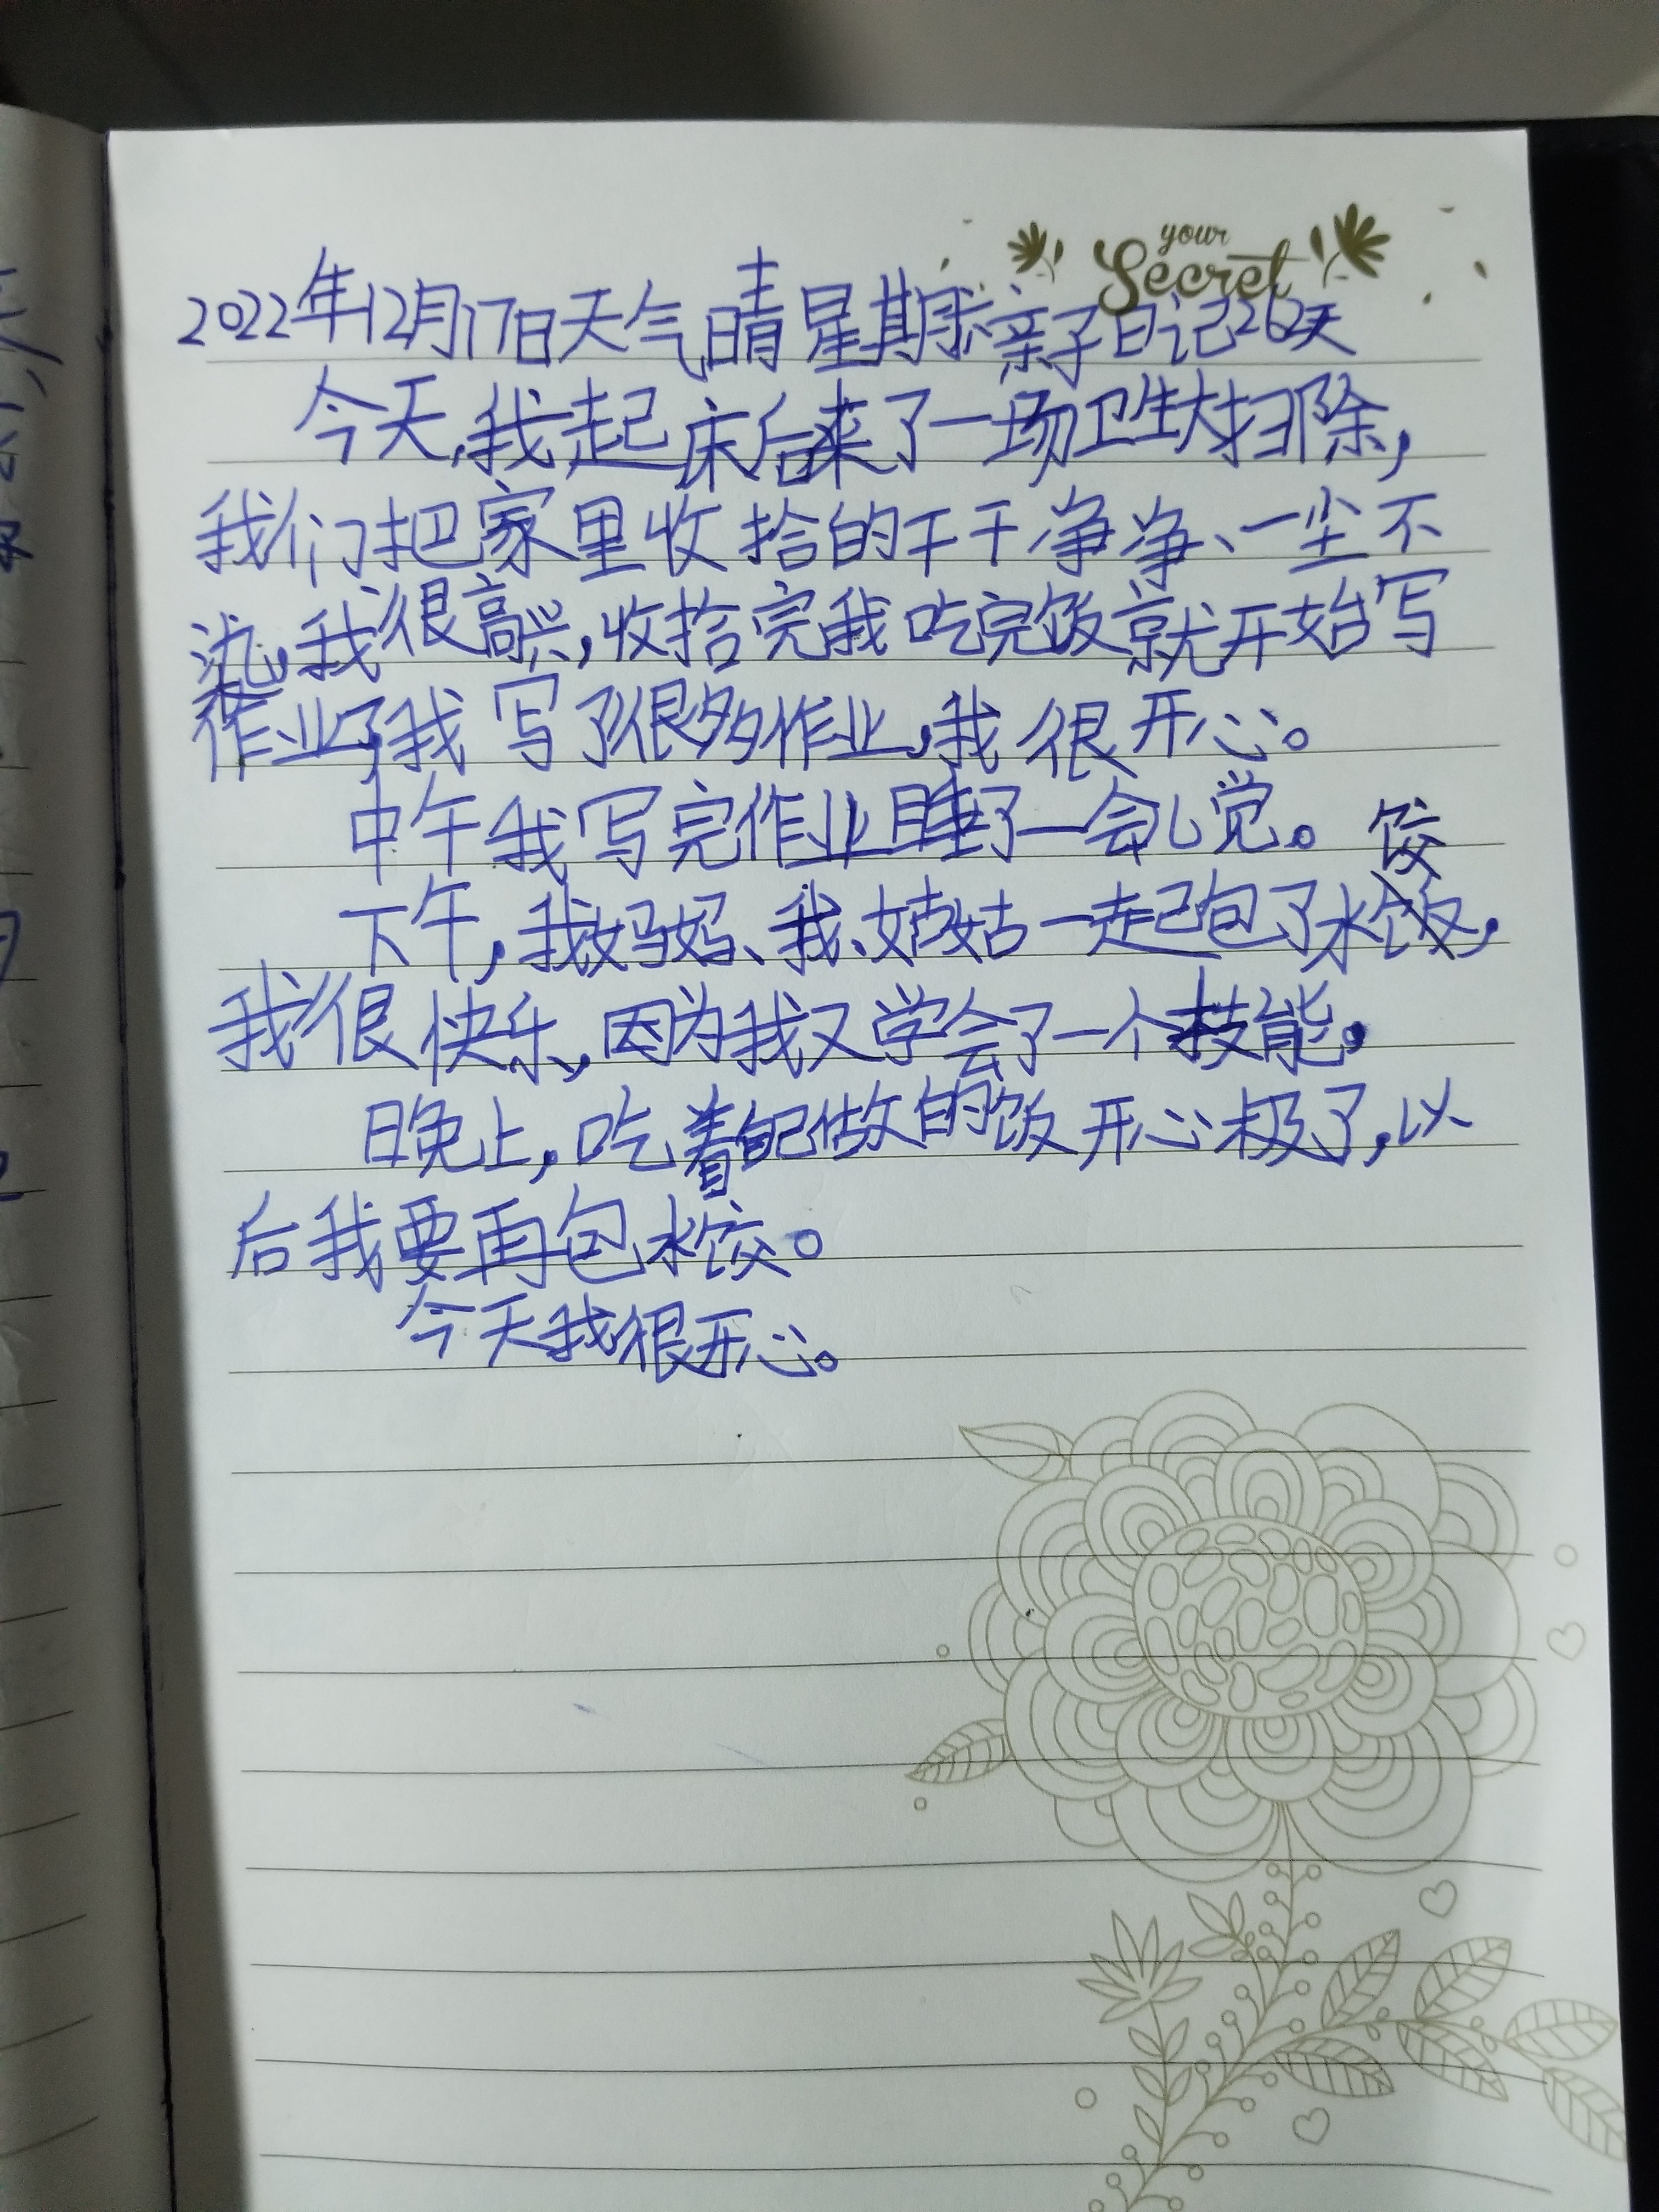 your
Secret
2022年12月17日天气晴星期六亲子日记262天
今天,我起床后来了一场卫生大扫除,
我们把家里收拾的干干净净、一尘不
染,我很高兴,收拾完我吃完饭就开始写
作业了,我写了很多作业,我很开心。
中午我写完作业睡了一会儿觉。
下午,我妈妈、我、姑姑一起包了水饺,
我很快乐,因为我又学会了一个技能,
晚上,吃着自己做的饭开心极了,以
后我要再包水饺。
今天我很开心。